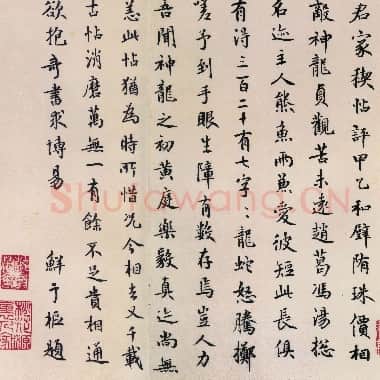 君家稧帖評甲乙和璧隋珠價相
敵神龍貞觀苦未遠趙葛馮湯捴
名迹主人熊魚兩兼愛彼短此長俱
有得三百二十有七字〻龍蛇怒騰擲
嗟予到手眼生障有數存焉豈人力
吾聞神龍之初黃庭樂毅真迹尚無
恙此帖猶為時所惜況今相去又千載
古帖消磨萬無一有餘不足貴相通
欲抱奇書求博易 鮮于樞題
Shufawang.CN